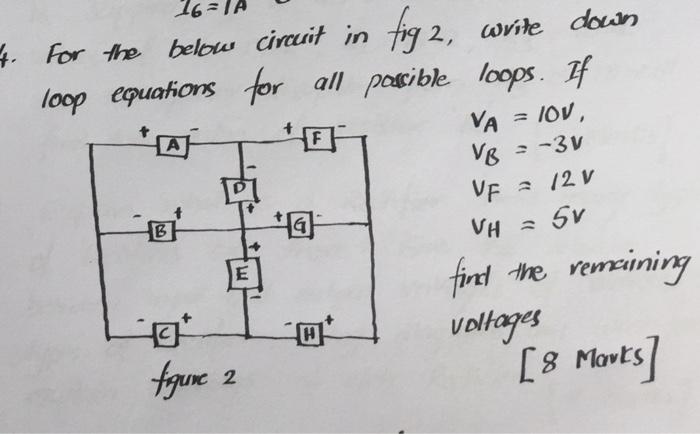 I6 = 1A
4. For the below circuit in fig 2, write down
loop equations for all possible loops. If
VA = 10V,
VB = -3V
VF = 12V
VH = 5V
find the remaining
voltages
[8 Marks]
+ A - + F -
- D +
- B + + G -
+ E -
- C + - H +
figure 2